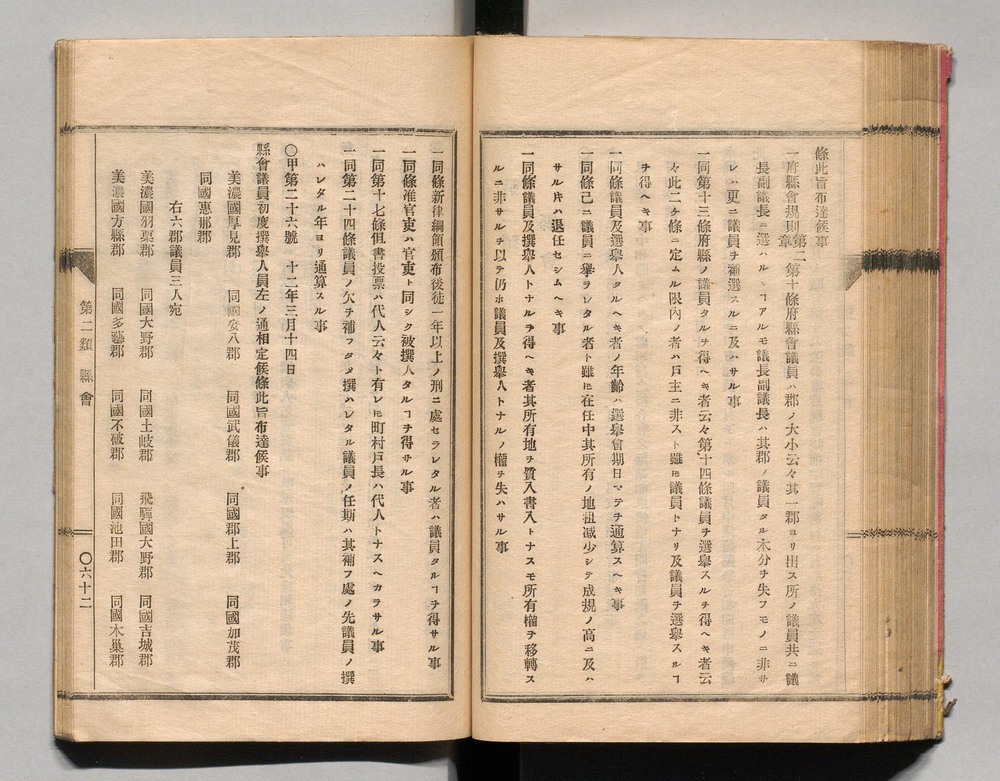 條此旨布達候事
一府縣會規則第二章第十條府縣會議員ハ郡ノ大小云々其一郡ヨリ出ス所ノ議員共ニ議
長副議長ニ選ハルヽヿアルモ議長副議長ハ其郡ノ議員タル本分ヲ失フモノニ非サ
レハ更ニ議員ヲ補選スルニ及ハサル事
一同第十三條府縣ノ議員タルヲ得ヘキ者云々第十四條議員ヲ選擧スルヲ得ヘキ者云
々此二ケ條ニ定ムル限內ノ者ハ戸主ニ非スト雖𪜈議員トナリ及議員ヲ選擧スルヿ
ヲ得ヘキ事
一同條議員及選擧人タルヘキ者ノ年齡ハ選擧會期日マテヲ通算スヘキ事
一同條己ニ議員ニ擧ラレタル者ト雖𪜈在任中其所有ノ地租減少シテ成規ノ高ニ及ハ
サル片ハ退任セシムヘキ事
一同條議員及撰擧人トナルヲ得ヘキ者其所有地ヲ質入書入トナスモ所有權ヲ移轉ス
ルニ非サルヲ以テ仍ホ議員及撰擧人トナルノ權ヲ失ハサル事
一同條新律綱領頒布後徒一年以上ノ刑ニ處セラレタル者ハ議員タルヿヲ得サル事
一同條准官吏ハ官吏ト同シク被撰人タルヿヲ得サル事
一同第十七條但書投票ハ代人云々ト有レ𪜈町村戸長ハ代人トナスヘカラサル事
一同第二十四條議員ノ欠ヲ補フタメ撰ハレタル議員ノ任期ハ其補フ處ノ先議員ノ撰
ハレタル年ヨリ通算スル事
〇甲第二十六號 十二年三月十四日
縣會議員初度撰擧人員左ノ通相定候條此旨布達候事
美濃國厚見郡 同國安八郡 同國武儀郡 同國郡上郡 同國加茂郡
同國惠那郡
右六郡議員三人宛
美濃國羽栗郡 同國大野郡 同國土岐郡 飛驒國大野郡 同國吉城郡
美濃國方縣郡 同國多藝郡 同國不破郡 同國池田郡 同國本巢郡
第二類 縣會
〇六十二